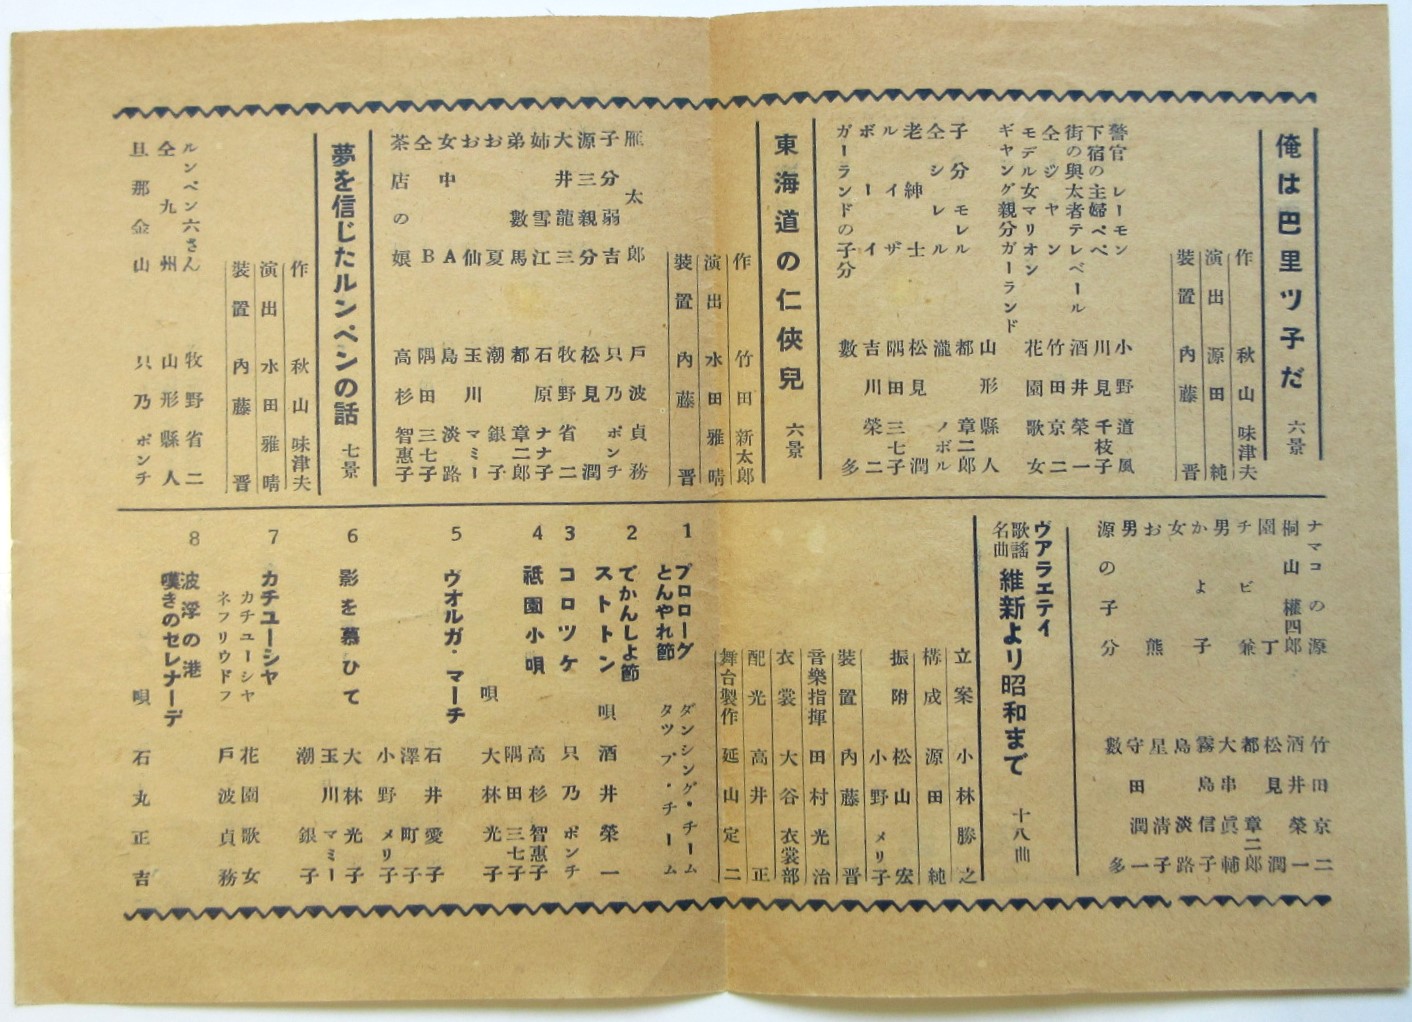 俺は巴里ツ子だ 六景
作 秋山味津夫
演出 源田純
裝置 內藤晋
警官レーモン 小野道風
下宿の主婦ペペ 川見千枝子
街の與太者テレベール 酒井榮一
仝ジヤン 竹田京二
モデル女マリオン 花園歌女
ギヤング親分ガーランド 山形縣人
子分モレル 都章二郎
仝シレル 瀧ノボル
老紳士 松見潤
ルイザ 隅田三七子
ボーイ 吉川榮二
ガーランドの子分 數多
東海道の仁俠兒 六景
作 竹田新太郎
演出 水田雅晴
裝置 內藤晋
雁太郎 戶波貞務
子分弱吉 只乃ポンチ
源三親分 松見潤
大井龍三 牧野省二
姉雪江 石原ナナ子
弟數馬 都章二郎
お夏 潮銀子
お仙 玉川マミー
女中A 島淡路
仝B 隅田三七子
茶店の娘 高杉智惠子
夢を信じたルンペンの話 七景
作 秋山味津夫
演出 水田雅晴
裝置 內藤晋
ルンペン六さん 牧野省二
仝九州 山形縣人
旦那金山 只乃ポンチ
ナマコの源 竹田京二
桐山權四郎 酒井榮一
園丁 松見潤
チビ兼 都章二郎
男 大串眞輔
かよ子 霧島信子
女 島淡路
お熊 星清子
男 守田潤一
源の子分 數多
ヴアラエテイ
歌謠名曲 維新より昭和まで 十八曲
立案 小林勝之
構成 源田純
振附 松山宏
小野メリ子
裝置 內藤晋
音樂指揮 田村光治
衣裳 大谷衣裳部
配光 高井正
舞台製作 延山定二
1 プロローグ ダンシング・チーム
とんやれ節 タツプ・チーム
2 でかんしよ節
ストトン 唄 酒井榮一
3 コロツケ 只乃ポンチ
4 祇園小唄 高杉智惠子
隅田三七子
唄 大林光子
5 ヴオルガ・マーチ 石井愛子
澤町子
小野メリ子
6 影を慕ひて 大林光子
玉川マミー
潮銀子
7 カチユーシヤ
カチユーシヤ 花園歌女
ネフリウドフ 戶波貞務
8 波浮の港
嘆きのセレナーデ 唄 石丸正吉